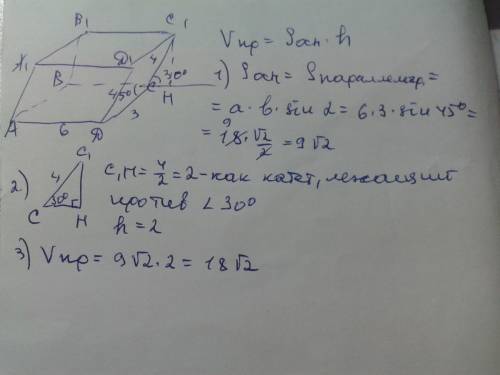 B₁ C₁
A₁ D₁ 4 30°
B 45° C H
A 6 D 3
Vпр = Sосн · h
1) Sосн = Sпараллелогр =
= a · b · sin α = 6 · 3 · sin 45° =
= 18 · √2/2 = 9√2
9
2) C₁ 4 30° C H
C₁H = 4/2 = 2 - как катет, лежащий
против ∠30°
h = 2
3) Vпр = 9√2 · 2 = 18√2